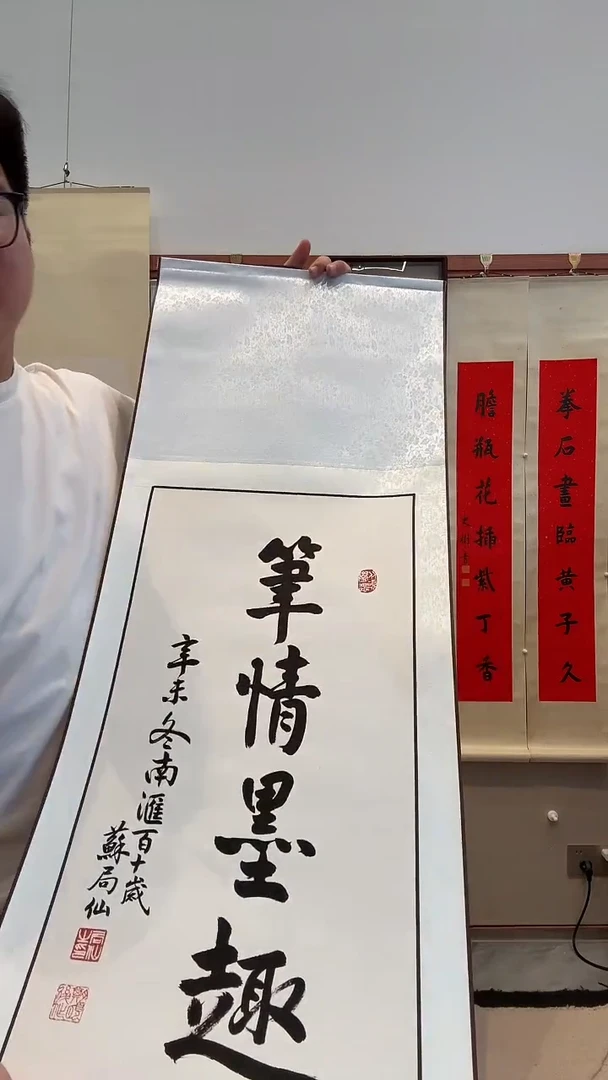 筆情墨趣
辛未冬南滙百十歲
蘇局仙
拳石畫臨黄子久
膽瓶花插紫丁香